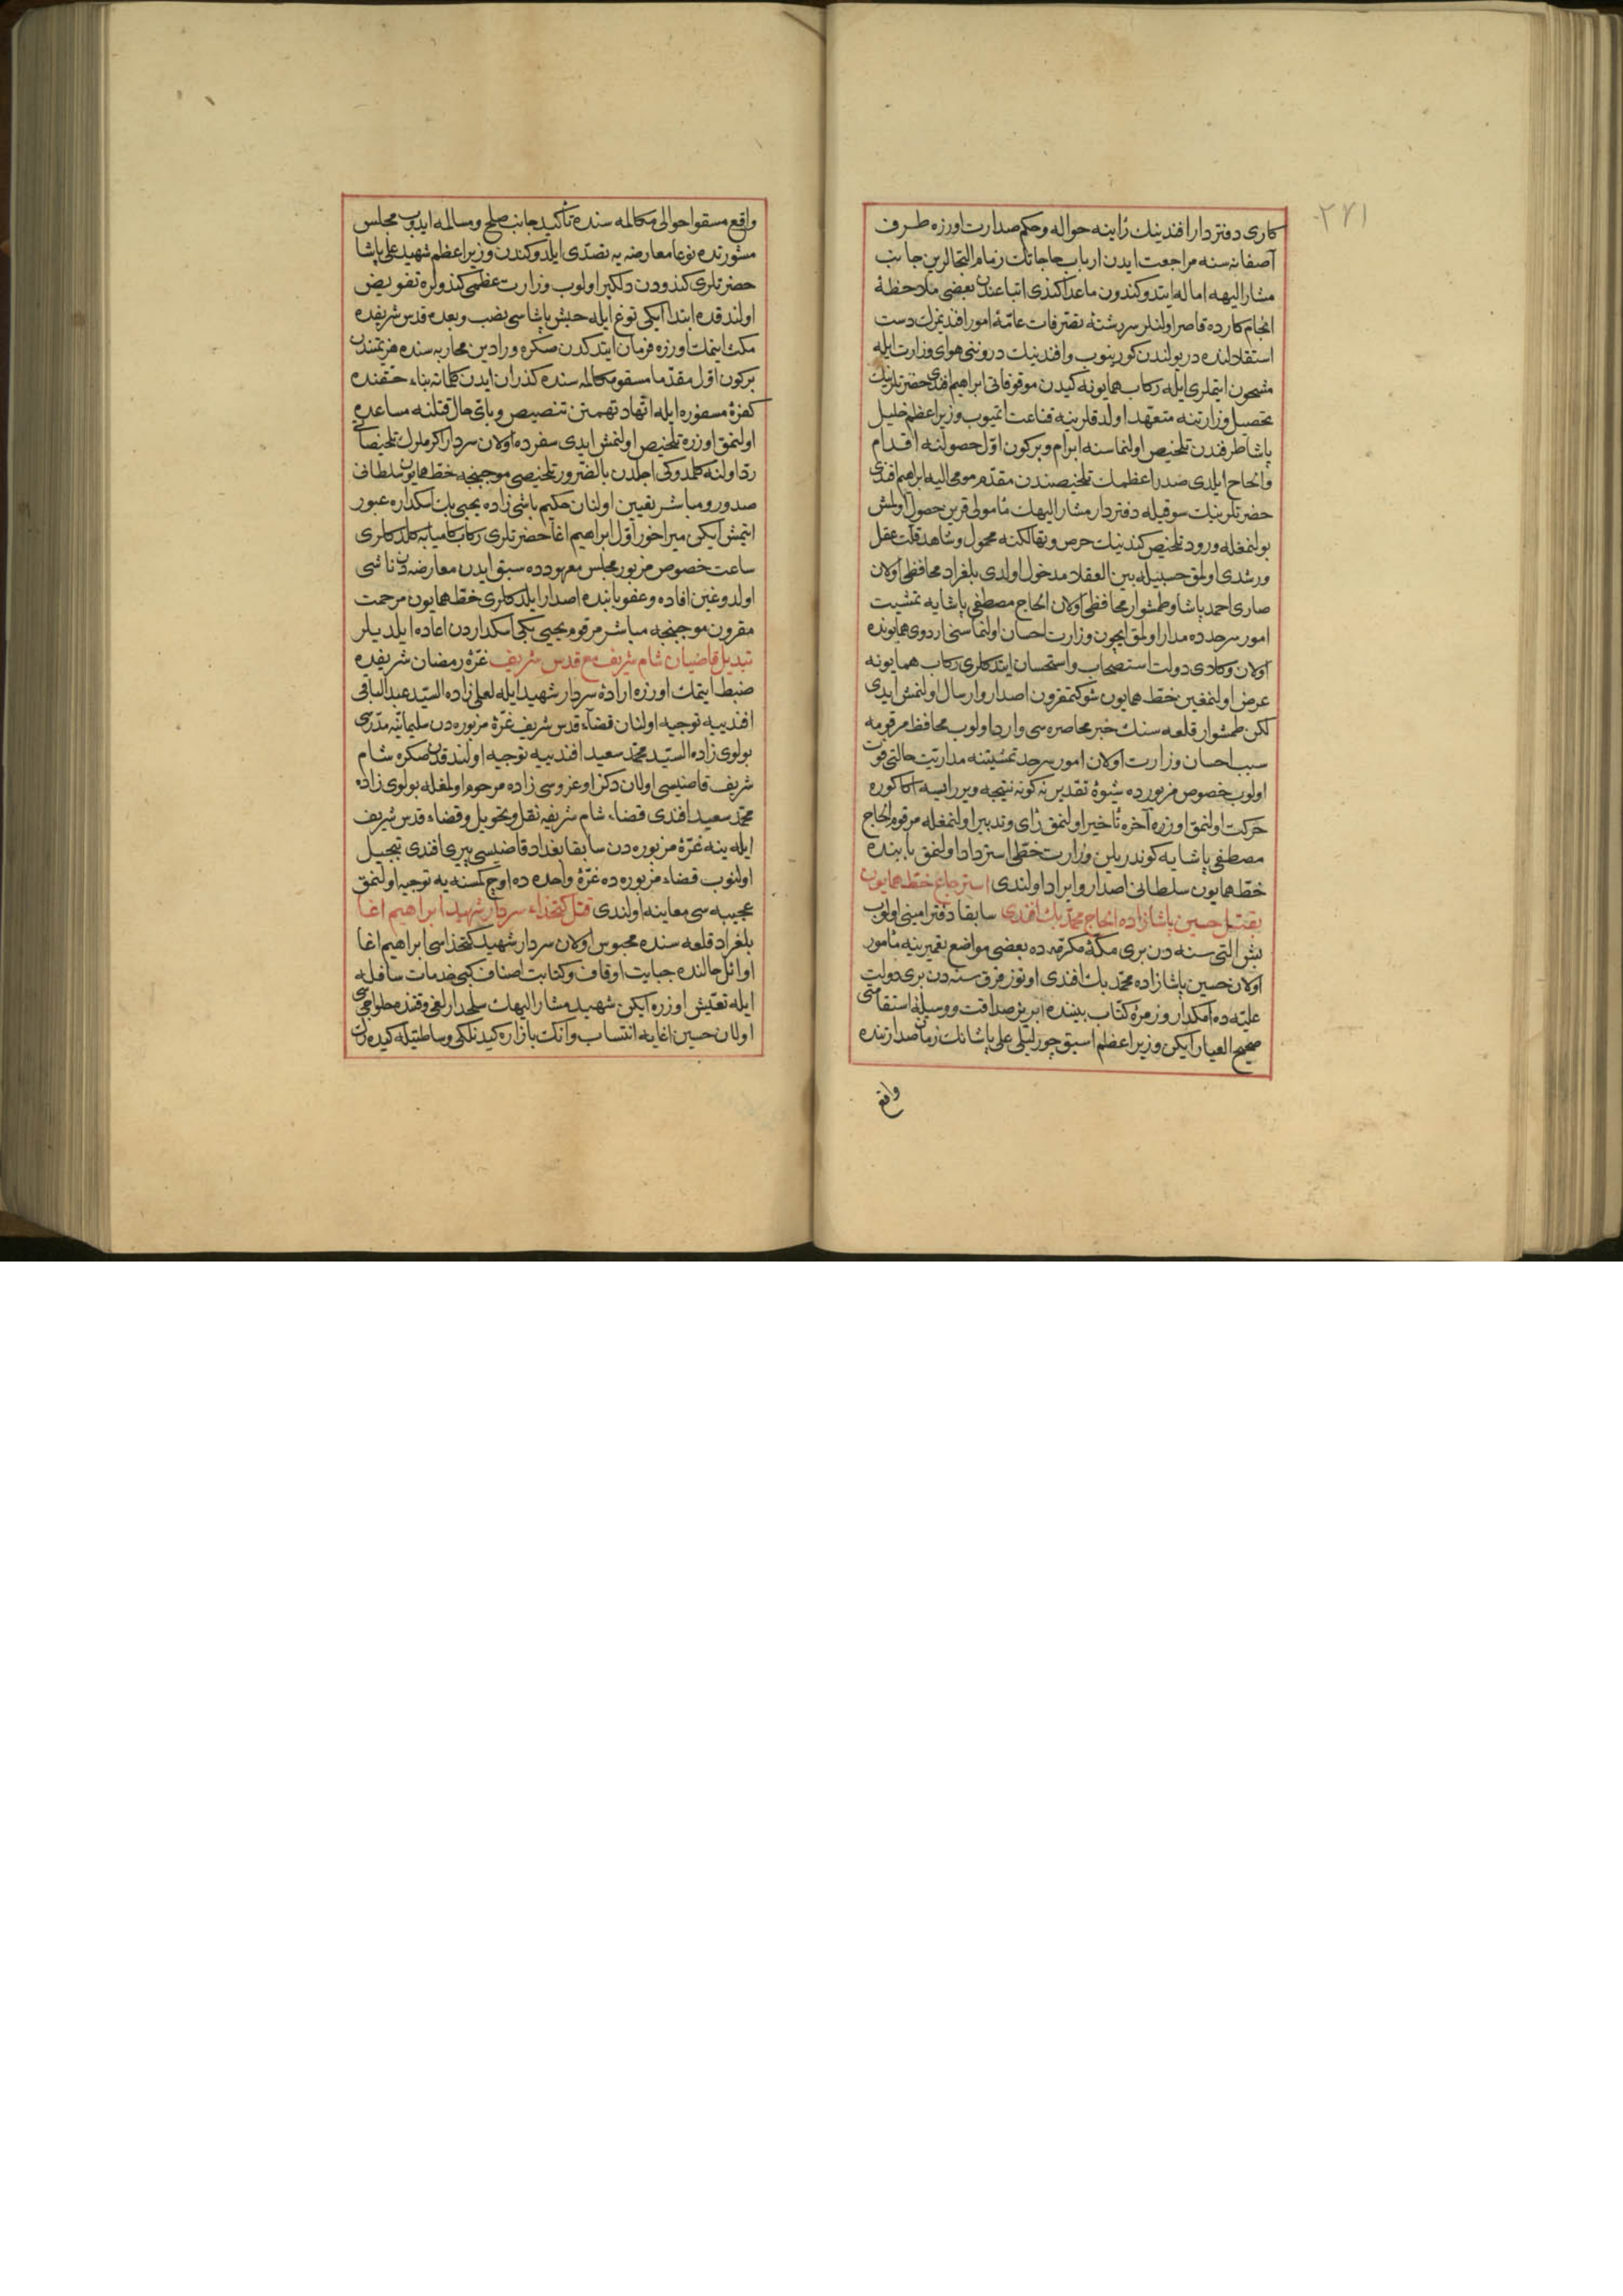 ٢٧١
كارى دفتردار افندينك رأينه حواله وحكم صدارت اوزره طرف
آصفانه سنه مراجعت ايدن ارباب حاجاتك زمام التجالرين جانب
مشار اليهه اماله ايتدوكندون ماعدا كندى اتباعندن بعضى ملاحظهٔ
انجام كارده قاصر اولنلر سررشتهٔ تصرفات عامهٔ امور افنديمزك دست
استقلالنده در بولندن كورينوب وافندينك دروننى هواى وزارت ايله
مشحون ايتملرى ايله ركاب همايونه كيدن موقوفاتى ابراهيم افندى حضرتلرينك
تحصيل وزارتنه متعهد اولدقلرينه قناعت ايتميوب وزير اعظم خليل
پاشا طرفندن تلخيص اولنماسنه ابرام وبركون اول حصولنه اقدام
والحاح ايلدى صدر اعظمك تلخيصندن مقدم مومى اليه ابراهيم افندى
حضرتلرينك سوقيله دفتردار مشار اليهك مأمولى قرين حصول اولمش
بولنمغله ورود تلخيص كندينك حرص وتهالكنه محمول وشاهد قلت عقل
ورشدى اولمق حسبيله بين العقلا مدخول اولدى بلغراد محافظى اولان
صارى احمد پاشا وطمشوار محافظى اولان الحاج مصطفى پاشايه تمشيت
امور سرحدده مدار اولمق ايچون وزارت احسان اولنماسنى اردوى همايونده
اولان وكلاى دولت استصحاب واستحسان ايتدكلرى ركاب همايونه
عرض اولنمغين خط همايون شوكتمقرون اصدار وارسال اولنمش ايدى
لكن طمشوار قلعه سنك خبر محاصره سى وارد اولوب محافظ مرقومه
سبب احسان وزارت اولان امور سرحد تمشيتنه مداريت حالتى فوت
اولوب خصوص مزبورده شيوهٔ تقدير نه كونه نتيجه ويررايسه اكا كوره
حركت اولنمق اوزره آخره تأخير اولنمق رأى وتدبير اولنمغله مرقوم الحاج
مصطفى پاشايه كوندريلن وزارت خطى استرداد اولنمق بابنده
خط همايون سلطانى اصدار وايراد اولندى استرجاع خط همايون
بقتل حسين پاشازاده الحاج محمد بك افندى سابقا دفتر امينى اولوب
بش التى سنه دن برى مكهٔ مكرمه ده بعضى مواضع تعميرينه مأمور
اولان حسين پاشازاده محمد بك افندى اوتوز قرق سنه دن برى دولت
عليه ده امكدار وزمرهٔ كتاب بيننده ابريز صداقت ووسيلهٔ استقامتى
صحيح العيار ايكن وزير اعظم اسبق چورليلى على پاشانك زمان صدارتنده
واقع
واقع مسقو احوالى مكالمه سنده تأكيد جانب صلح ومسالمه ايدوب مجلس
مشورتده نوعا معارضه يه تصدى ايلدوكندن وزير اعظم شهيد على پاشا
حضرتلرى كندودن دلكير اولوب وزارت عظمى كندولره تفويض
اولندقده ابتدا ايكى توغ ايله حبش پاشاسى نصب وبعده قدس شريفده
مكث ايتمك اوزره فرمان ايتدكدن صكره ورادين محاربه سنده هزيمتندن
بركون اول مقدما مسقو مكالمه سنده كذران ايدن كلماته بناء حقنده
كفرهٔ مسفوره ايله اتهاد تهمتن تنصيص وباى حال قتلنه مساعده
اولنمق اوزره تلخيص اولنمش ايدى سفرده اولان سردار اكرملرك تلخيصاتى
رد اولنه كلمدوكى اجلدن بالضرور تلخيصى موجبنجه خط همايون سلطانى
صدور ومباشر تعيين اولنان حكيم باشى زاده يحيى بك اسكداره عبور
ايتمش ايكن ميراخور اول ابراهيم اغا حضرتلرى ركاب كاميابه كلدكلرى
ساعت خصوص مزبور مجلس معهودده سبق ايدن معارضه دن ناشى
اولدوغين افاده وعفو بابنده اصدار ايلدكلرى خط همايون مرحمت
مقرون موجبنجه مباشر مرقوم يحيى بكى اسكداردن اعاده ايلديلر
تبديل قاضيان شام شريف مع قدس شريف غرهٔ رمضان شريفده
ضبط ايتمك اوزره ارادهٔ سردار شهيد ايله لعلى زاده السيد عبدالباقى
افندييه توجيه اولنان قضاء قدس شريف غرهٔ مزبوره دن سليمانيه مدرسى
بولوى زاده السيد محمد سعيد افندييه توجيه اولندقدن صكره شام
شريف قاضيسى اولان دكز اوغروسى زاده مرحوم اولمغله بولوى زاده
محمد سعيد افندى قضاء شام شريفه نقل وتحويل وقضاء قدس شريف
ايله ينه غرهٔ مزبوره دن سابقا بغداد قاضيسى پيرى افندى تبجيل
اولنوب قضاء مزبوره ده غرهٔ واحده ده اوچ كسنه يه توجيه اولنمق
عجيبه سى معاينه اولندى قتل كتخداء سردار شهيد ابراهيم اغا
بلغراد قلعه سنده محبوس اولان سردار شهيد كتخداسى ابراهيم اغا
اوائل حالنده جبايت اوقاف وكتابت اصناف كبى خدمات سافله
ايله تعيش اوزره ايكن شهيد مشار اليهك سلحدارلغى وقتنده حلواجى
اولان حسين اغايه انتساب وانك بازاره كيدنلكى وساطتيله كيده رك